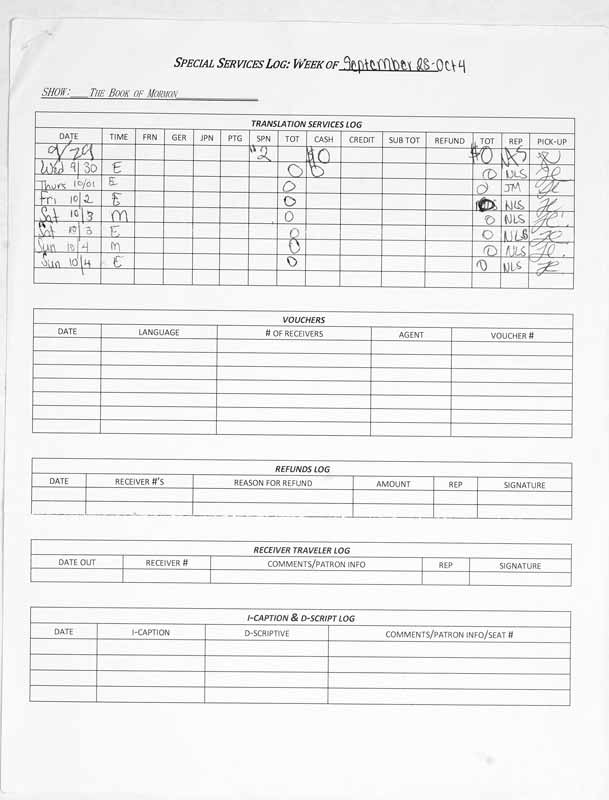 SPECIAL SERVICES LOG: WEEK OF September 28-Oct 4
SHOW: THE BOOK OF MORMON
TRANSLATION SERVICES LOG
DATE TIME FRN GER JPN PTG SPN TOT CASH CREDIT SUB TOT REFUND TOT REP PICK-UP
9/29 2 $0 $0
Wed 9/30 E 0 0 0 NLS
Thurs 10/01 E 0 0 JM
Fri 10/2 E 0 NLS
Sat 10/3 M 0 0 NLS
Sat 10/3 E 0 0 NLS
Sun 10/4 M 0 0 NLS
Sun 10/4 E 0 0 NLS
VOUCHERS
DATE LANGUAGE # OF RECEIVERS AGENT VOUCHER #
REFUNDS LOG
DATE RECEIVER #'S REASON FOR REFUND AMOUNT REP SIGNATURE
RECEIVER TRAVELER LOG
DATE OUT RECEIVER # COMMENTS/PATRON INFO REP SIGNATURE
I-CAPTION & D-SCRIPT LOG
DATE I-CAPTION D-SCRIPTIVE COMMENTS/PATRON INFO/SEAT #